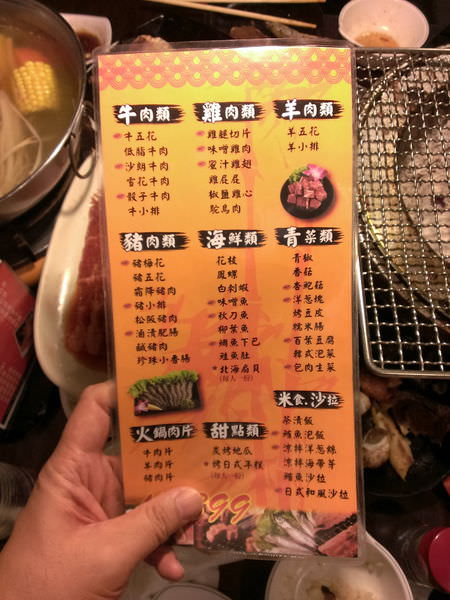 牛肉類
牛五花
低脂牛肉
沙朗牛肉
雪花牛肉
骰子牛肉
牛小排
雞肉類
雞腿切片
味噌雞肉
蜜汁雞翅
雞屁屁
椒鹽雞心
鴕鳥肉
羊肉類
羊五花
羊小排
豬肉類
豬梅花
豬五花
霜降豬肉
豬小排
松阪豬肉
滷漬肥腸
鹹豬肉
珍珠小香腸
海鮮類
花枝
鳳螺
白刺蝦
味噌魚
秋刀魚
柳葉魚
鯛魚下巴
旗魚肚
北海扇貝
(每人一份)
青菜類
青椒
香菇
杏鮑菇
洋蔥塊
烤豆皮
糯米腸
百葉豆腐
韓式泡菜
包肉生菜
米食.沙拉
茶漬飯
鮪魚泡飯
涼拌洋蔥絲
涼拌海帶芽
鮪魚沙拉
日式和風沙拉
火鍋肉片
牛肉片
羊肉片
豬肉片
甜點類
炭烤地瓜
烤日式年糕
(每人一份)
399